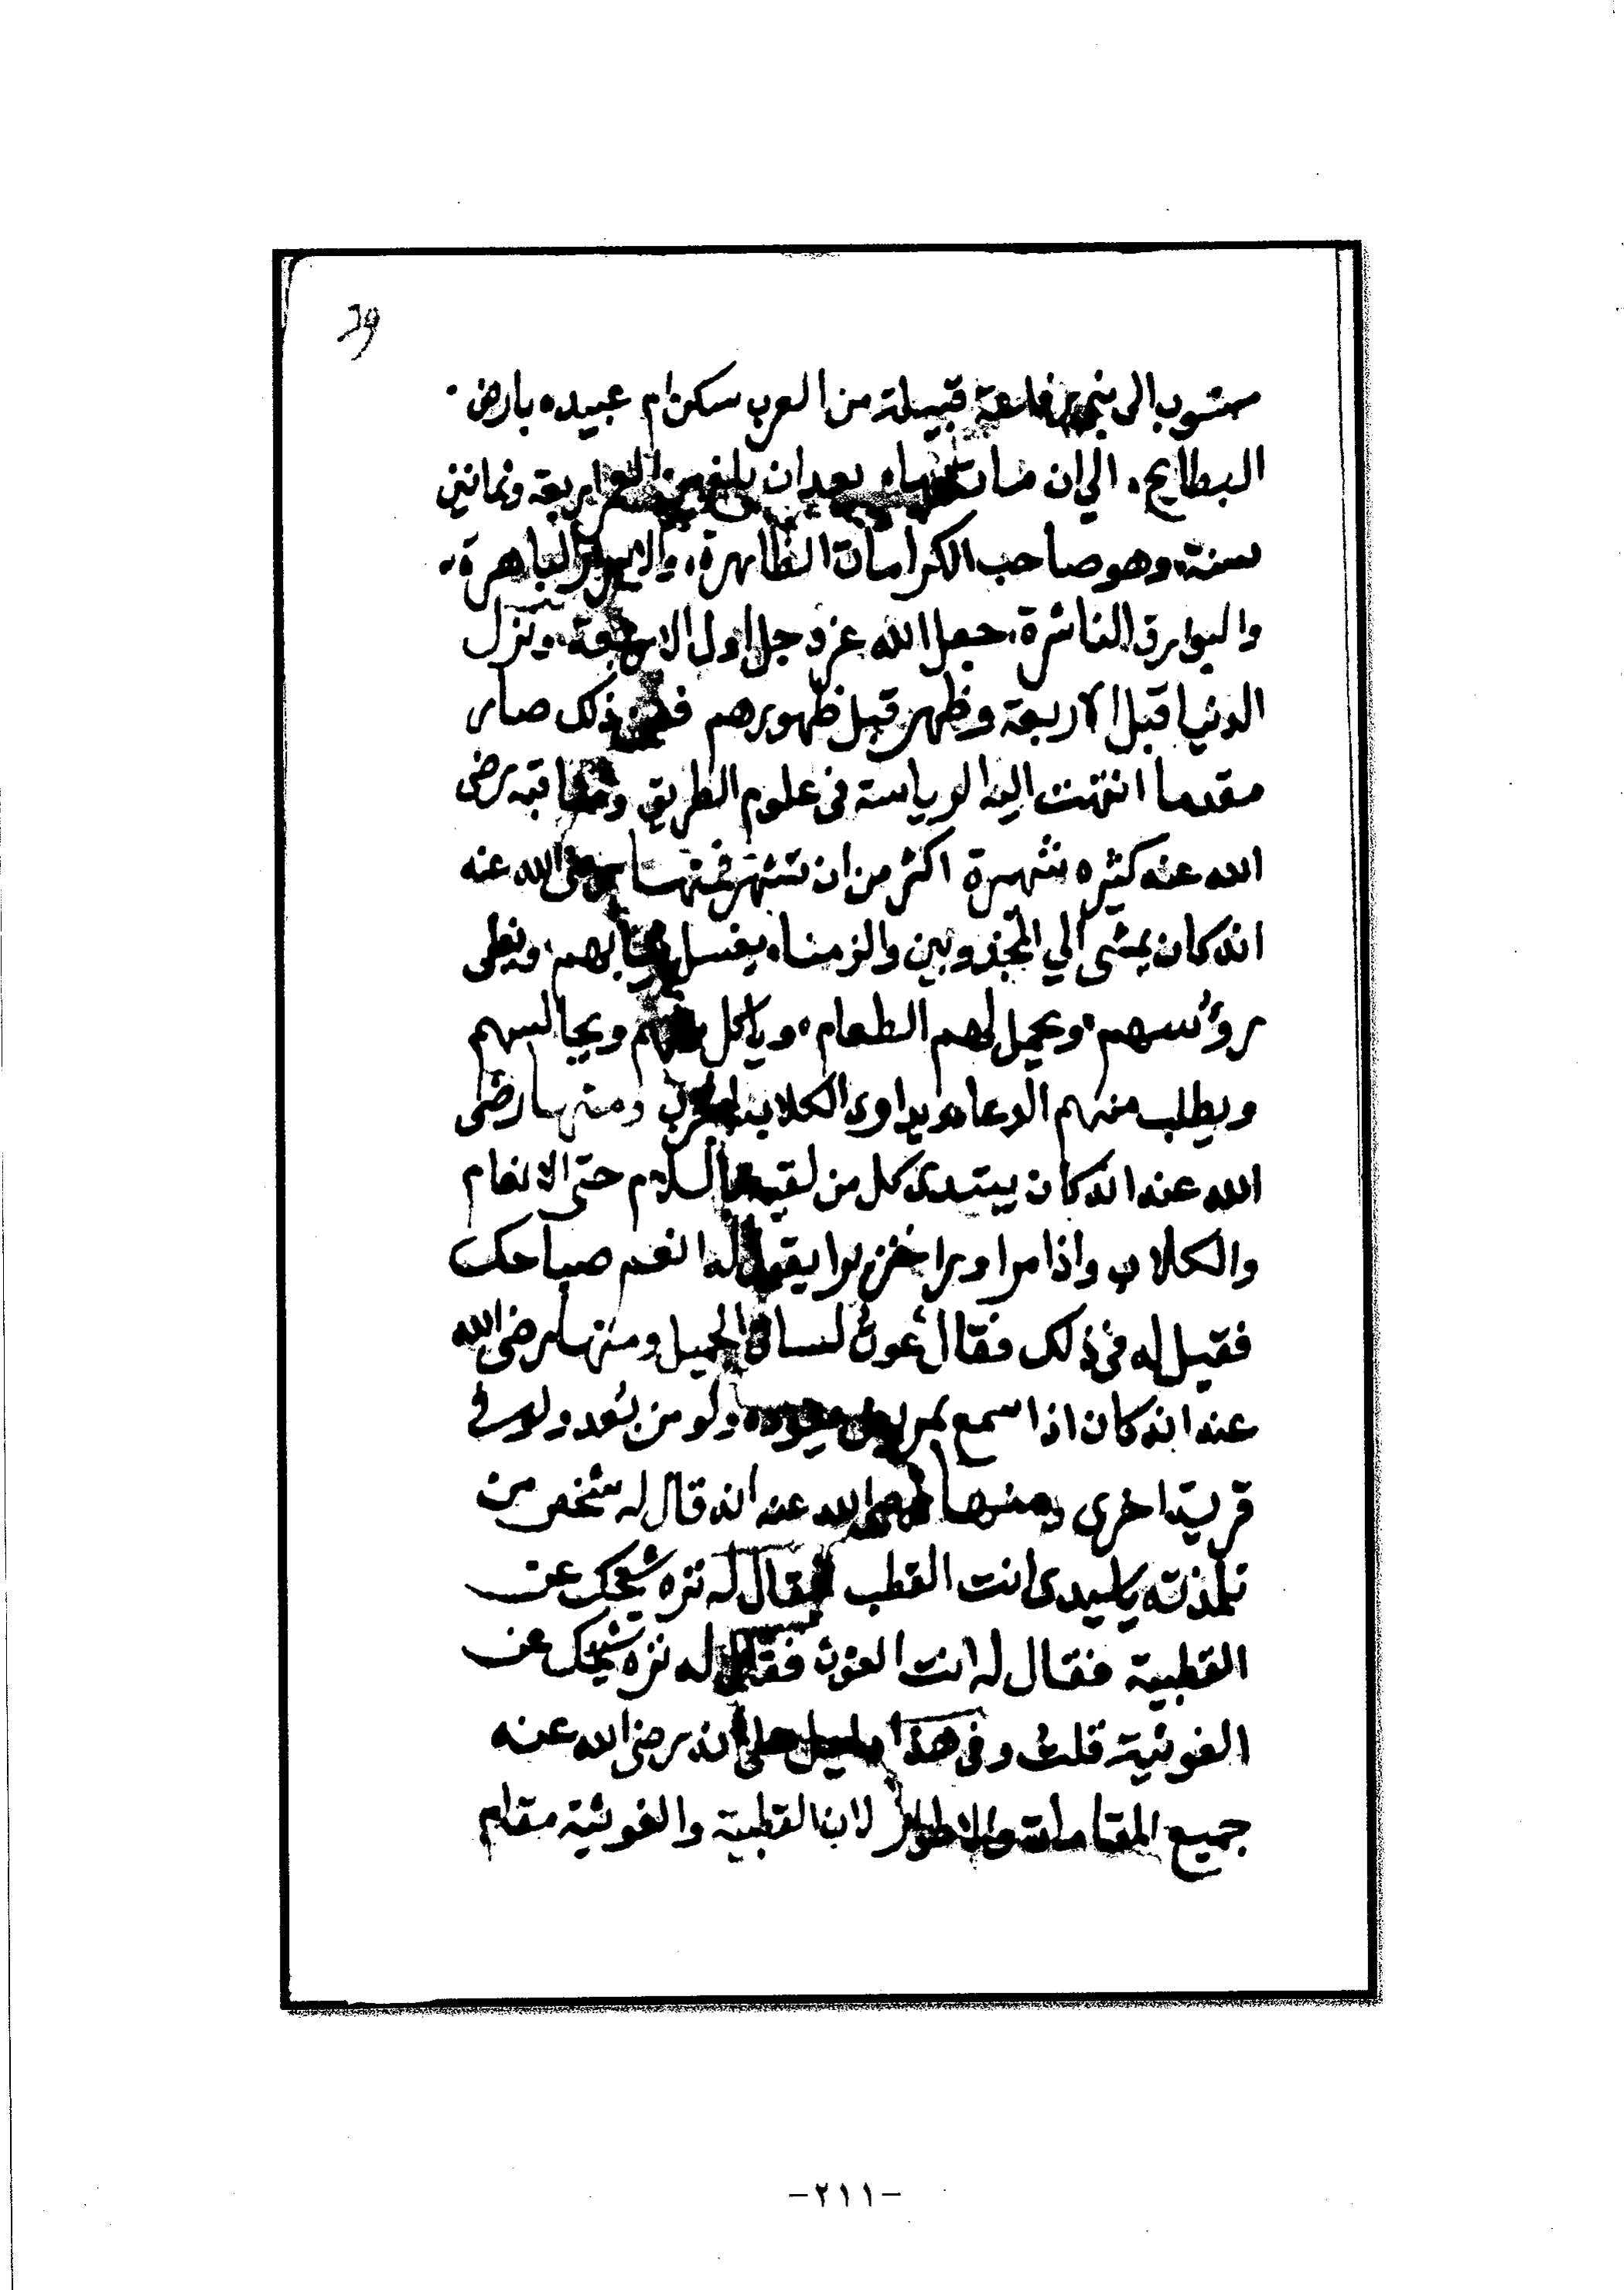 29
منسوب الى بني رفاعة قبيلة من العرب سكن ام عبيده بارض
البطايح، الي ان مات بها، بعد ان بلغ من العمر اربعة وثمانين
سنة، وهو صاحب الكرامات الظاهرة، والاسرار الباهرة،
والبوارق الناشرة، جعل الله عز وجل اول الاربعة، ونزل
الدنيا قبل الاربعة وظهر قبل ظهورهم فمن ذلك صار
مقدما انتهت اليه الرياسة في علوم الطريق ومناقبه رضى
الله عنه كثيره شهيرة اكثر من ان تشتهر فمنها رضى الله عنه
انه كان يمشى الي المجذوبين والزمناء يغسل ثيابهم، ويغطى
رؤسهم، ويحمل لهم الطعام، وياكل معهم ويجالسهم
ويطلب منهم الدعاء ويداوى الكلاب ومنها رضى
الله عنه انه كان يبتدى كل من لقيه بالسلام حتى الانعام
والكلاب واذا مرا ورا خنزيرا يقول له انعم صباحك
فقيل له في ذلك فقال عودت لساني الجميل ومنها رضى الله
عنه انه كان اذا سمع بمريض يعوده ولو من بُعد ولو في
قرية اخرى ومنها رضى الله عنه انه قال له شخص من
تلمذته يا سيدى انت القطب فقال له نزه شيخك عن
القطبية فقال له انت الغوث فقال له نزه شيخك عن
الغوثية قلت وفى هذا دليل على انه رضى الله عنه
جميع المقامات والاطوار لان القطبية والغوثية مقام
-٢١١-